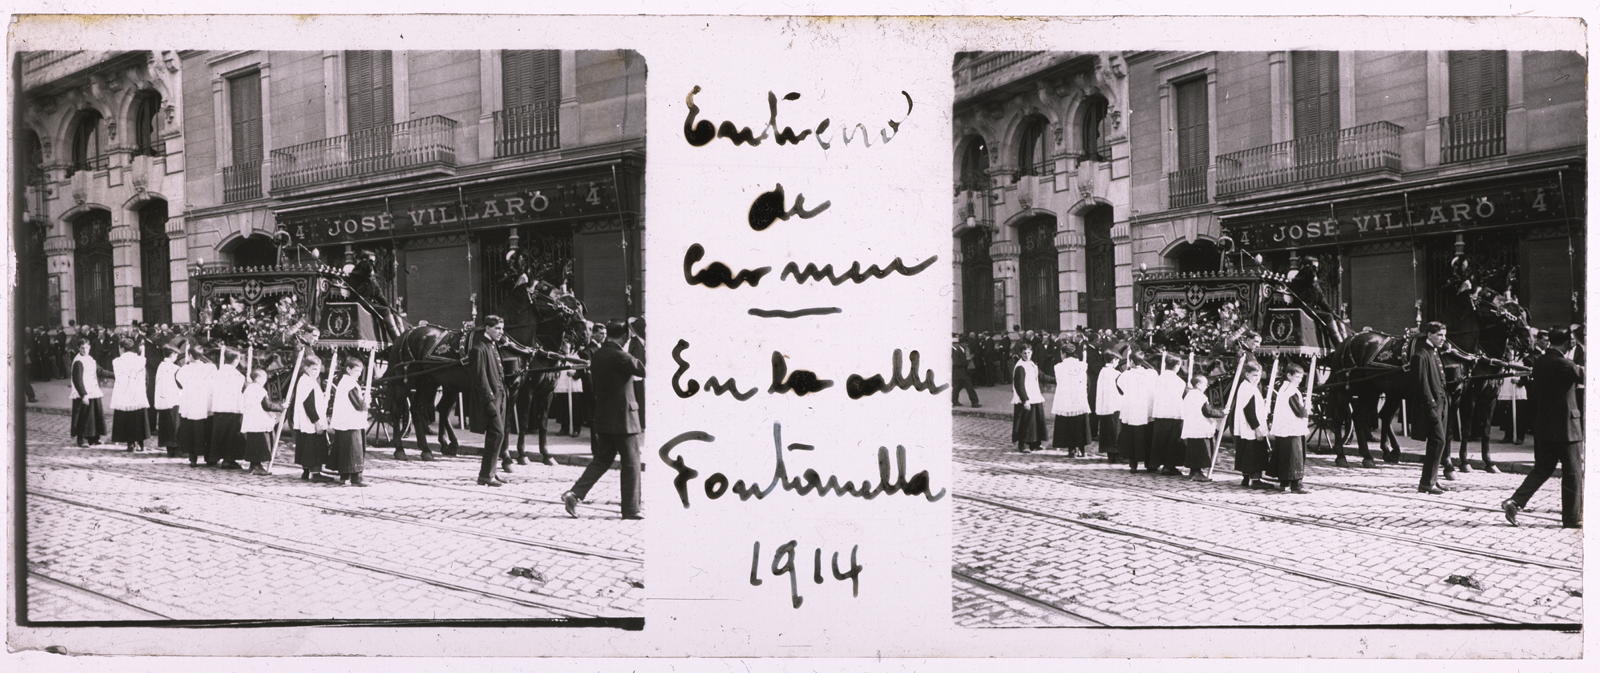 4 JOSÉ VILLARÓ 4
Entierro
de
Carmen
En la calle
Fontanella
1914
4 JOSÉ VILLARÓ 4